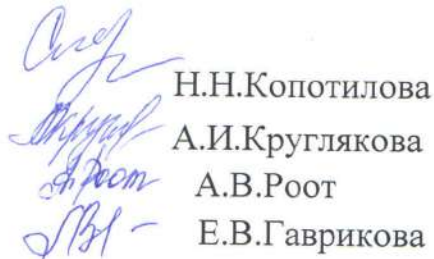 Н.Н.Копотилова
А.И.Круглякова
А.В.Роот
Е.В.Гаврикова